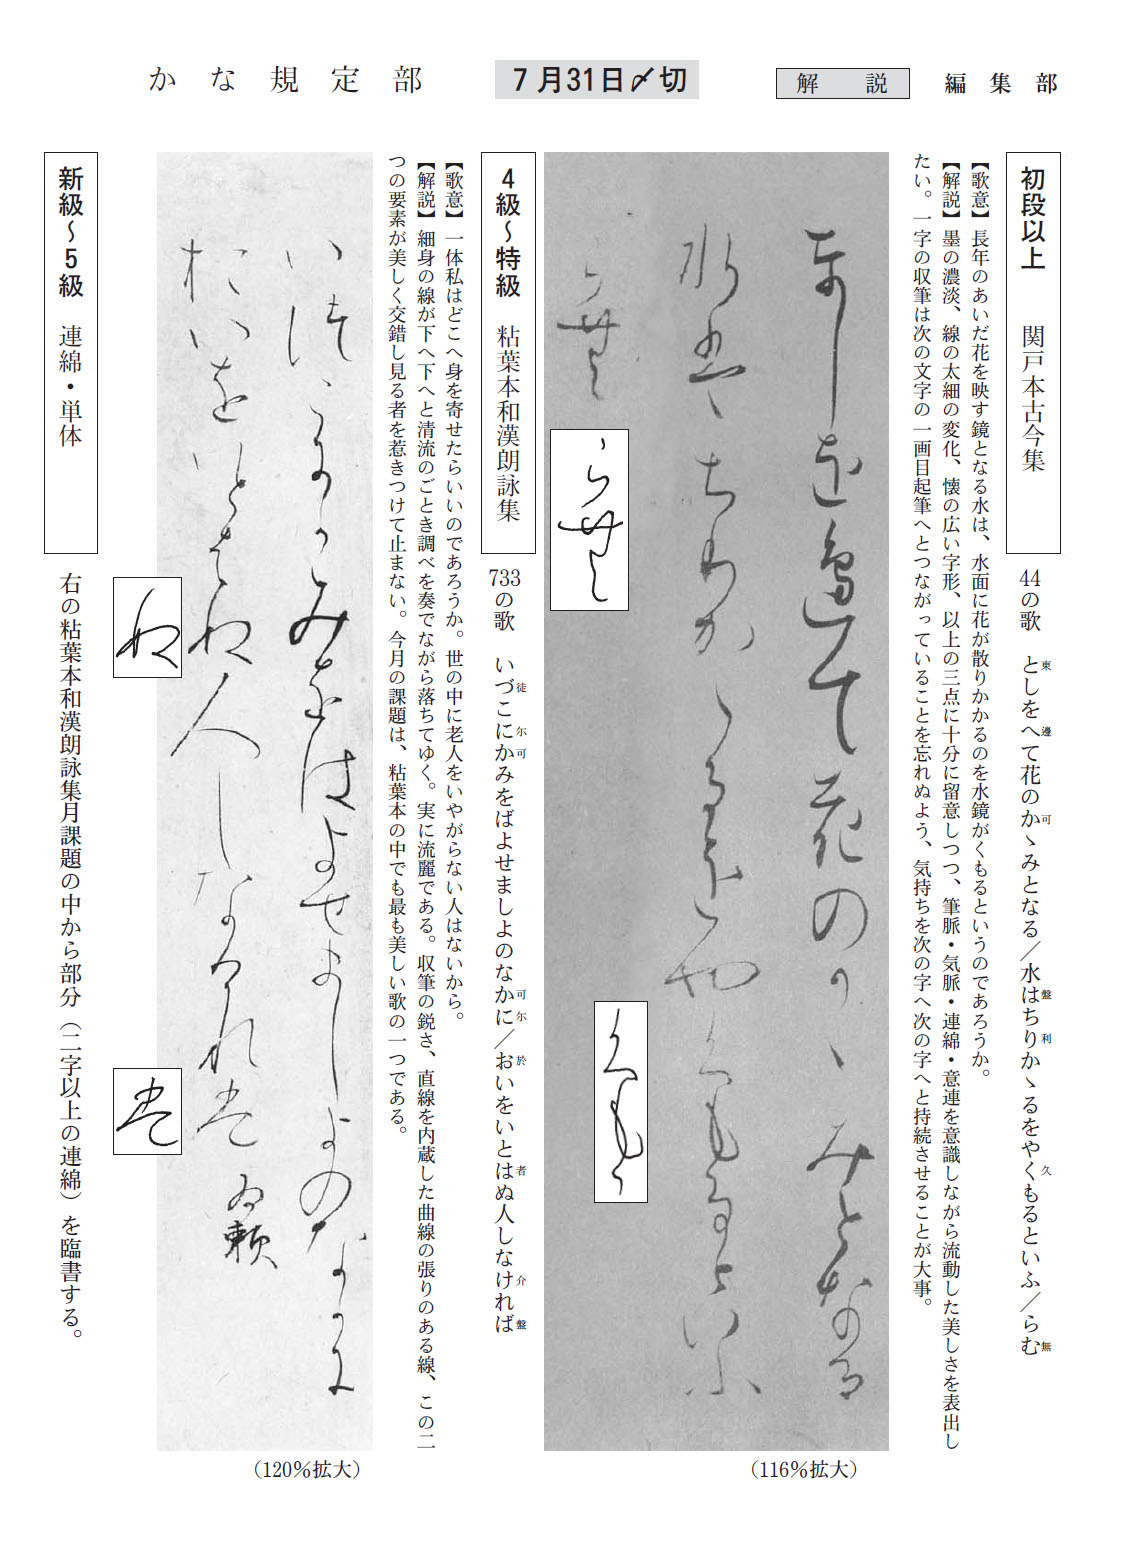 かな規定部
7月31日〆切
解説
編集部
初段以上　関戸本古今集
44の歌　としをへて花のかゝみとなる／水はちりかゝるをやくもるといふ／らむ
東　遵　可　盤　利　久　無
【歌意】長年のあいだ花を映す鏡となる水は、水面に花が散りかかるのを水鏡がくもるというのであろうか。
【解説】墨の濃淡、線の太細の変化、懐の広い字形、以上の三点に十分に留意しつつ、筆脈・気脈・連綿・意連を意識しながら流動した美しさを表出し
たい。一字の収筆は次の文字の一画目起筆へとつながっていることを忘れぬよう、気持ちを次の字へ次の字へと持続させることが大事。
東しを遵て花の可ゝみとなる
水盤ちりかゝるをや久もるといふ
らむ
らむ
くもる
（116%拡大）
4級〜特級　粘葉本和漢朗詠集
733の歌　いづこにかみをばよせましよのなかに／おいをいとはぬ人しなければ
徒　尓　可　可　尓　於　者　介　盤
【歌意】一体私はどこへ身を寄せたらいいのであろうか。世の中に老人をいやがらない人はないから。
【解説】細身の線が下へ下へと清流のごとき調べを奏でながら落ちてゆく。実に流麗である。収筆の鋭さ、直線を内蔵した曲線の張りのある線、この二
つの要素が美しく交錯し見る者を惹きつけて止まない。今月の課題は、粘葉本の中でも最も美しい歌の一つである。
い徒こ尓可みをはよせましよのな可尓
於いをいと者ぬ人しな介れ盤
為頼
ぬ
盤
（120%拡大）
新級〜5級　連綿・単体
右の粘葉本和漢朗詠集月課題の中から部分（二字以上の連綿）を臨書する。